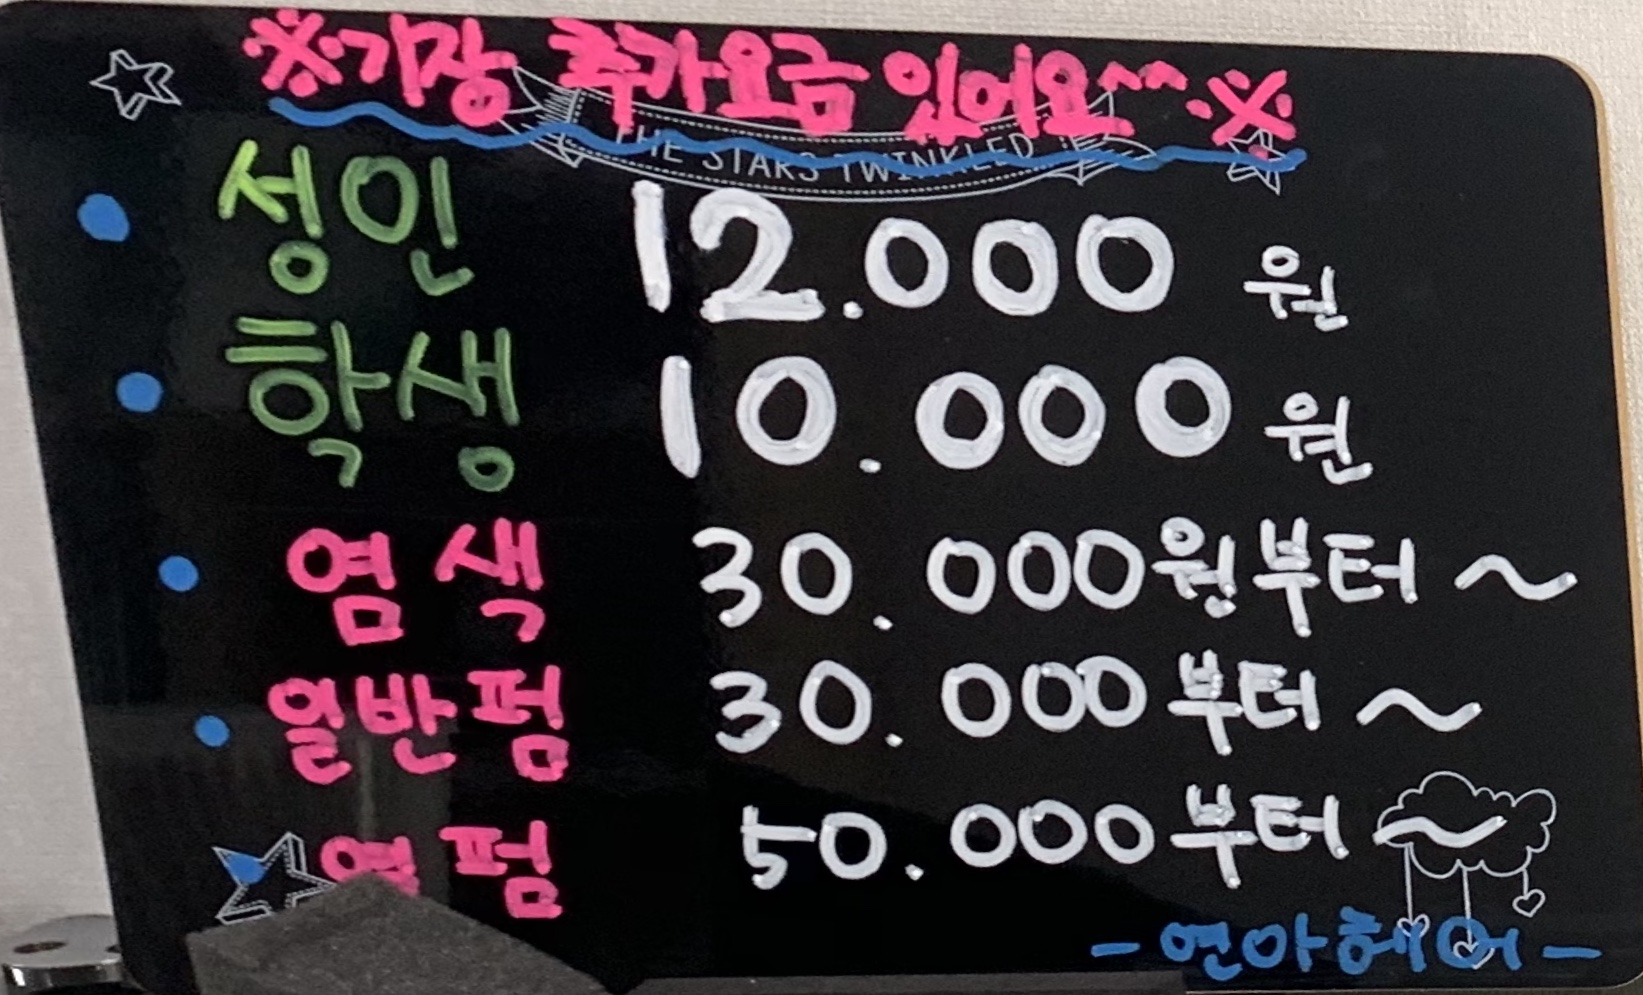 ※기장 추가요금 있어요^^.※
THE STARS TWINKLED
성인 12.000 원
학생 10.000 원
염색 30.000원부터~
일반펌 30.000부터~
펌 50.000부터~
-연아헤어-